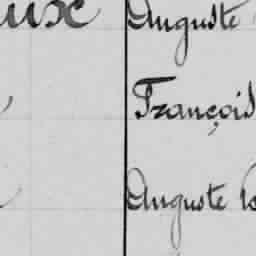 Auguste
François
Auguste